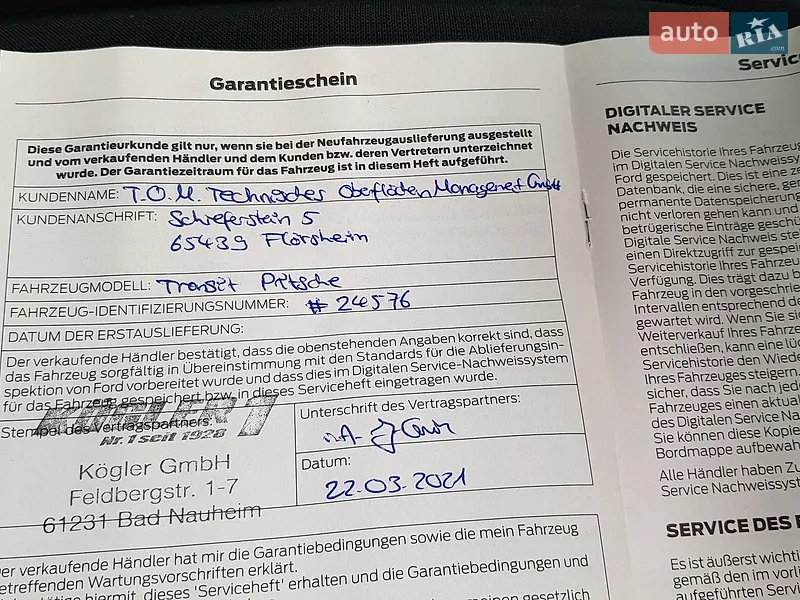 auto RIA.com
Garantieschein
Diese Garantieurkunde gilt nur, wenn sie bei der Neufahrzeugauslieferung ausgestellt
und vom verkaufenden Händler und dem Kunden bzw. deren Vertretern unterzeichnet
wurde. Der Garantiezeitraum für das Fahrzeug ist in diesem Heft aufgeführt.
KUNDENNAME: T.O.M. Technisches Oberflächen Management GmbH
KUNDENANSCHRIFT: Schieferstein 5
65439 Flörsheim
FAHRZEUGMODELL: Transit Pritsche
FAHRZEUG-IDENTIFIZIERUNGSNUMMER: # 24576
DATUM DER ERSTAUSLIEFERUNG:
Der verkaufende Händler bestätigt, dass die obenstehenden Angaben korrekt sind, dass
das Fahrzeug sorgfältig in Übereinstimmung mit den Standards für die Ablieferungsin-
spektion von Ford vorbereitet wurde und dass dies im Digitalen Service-Nachweissystem
für das Fahrzeug gespeichert bzw. in dieses Serviceheft eingetragen wurde.
Stempel des Vertragspartners:
KÖGLER 1
Nr. 1 seit 1928
Kögler GmbH
Feldbergstr. 1-7
61231 Bad Nauheim
Unterschrift des Vertragspartners:
i.A.
Datum:
22.03.2021
er verkaufende Händler hat mir die Garantiebedingungen sowie die mein Fahrzeug
etreffenden Wartungsvorschriften erklärt.
hiermit, dieses 'Serviceheft' erhalten und die Garantiebedingungen und
meinen gesetzlich
Servic
DIGITALER SERVICE
NACHWEIS
Die Servicehistorie Ihres Fahrzeug
im Digitalen Service Nachweissys
Ford gespeichert. Dies ist eine ze
Datenbank, die eine sichere, ge
permanente Datenspeicherung
nicht verloren gehen kann und
betrügerische Einträge geschü
Digitale Service Nachweis ste
einen Direktzugriff zur gespei
Servicehistorie Ihres Fahrzeu
Verfügung. Dies trägt dazu b
Fahrzeug in den vorgeschrie
Intervallen entsprechend de
gewartet wird. Wenn Sie sich
Weiterverkauf Ihres Fahrze
entschließen, kann eine lü
Servicehistorie den Wiede
Ihres Fahrzeuges steigern.
sicher, dass Sie nach jed
Fahrzeuges einen aktua
des Digitalen Service Na
Sie können diese Kopie
Bordmappe aufbewah
Alle Händler haben Zu
Service Nachweissyst
SERVICE DES F
Es ist äußerst wichti
gemäß den im vorli
aufgeführten Servi